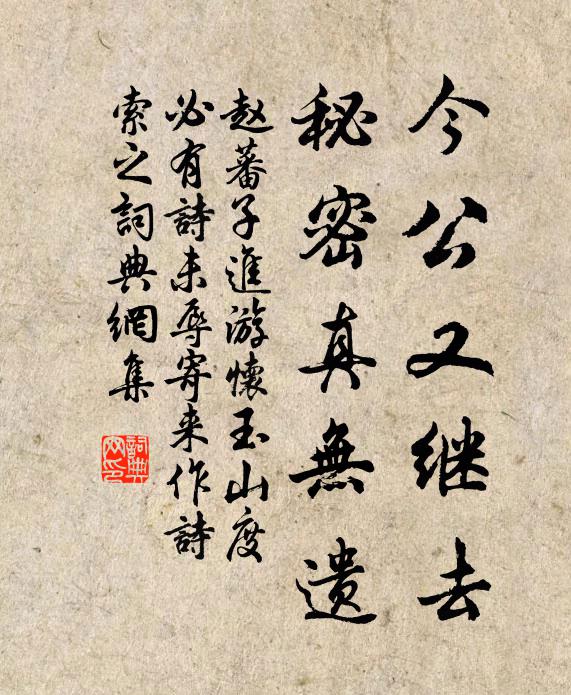 今公又继去
秘密真無遗
赵蕃子進游懷玉山度
必有詩未辱寄来作詩
索之詞典網集
詞典
网印